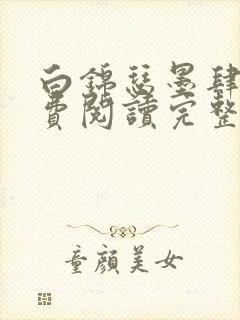 白錦瑟墨肆
費閱讀完整
童顏美女